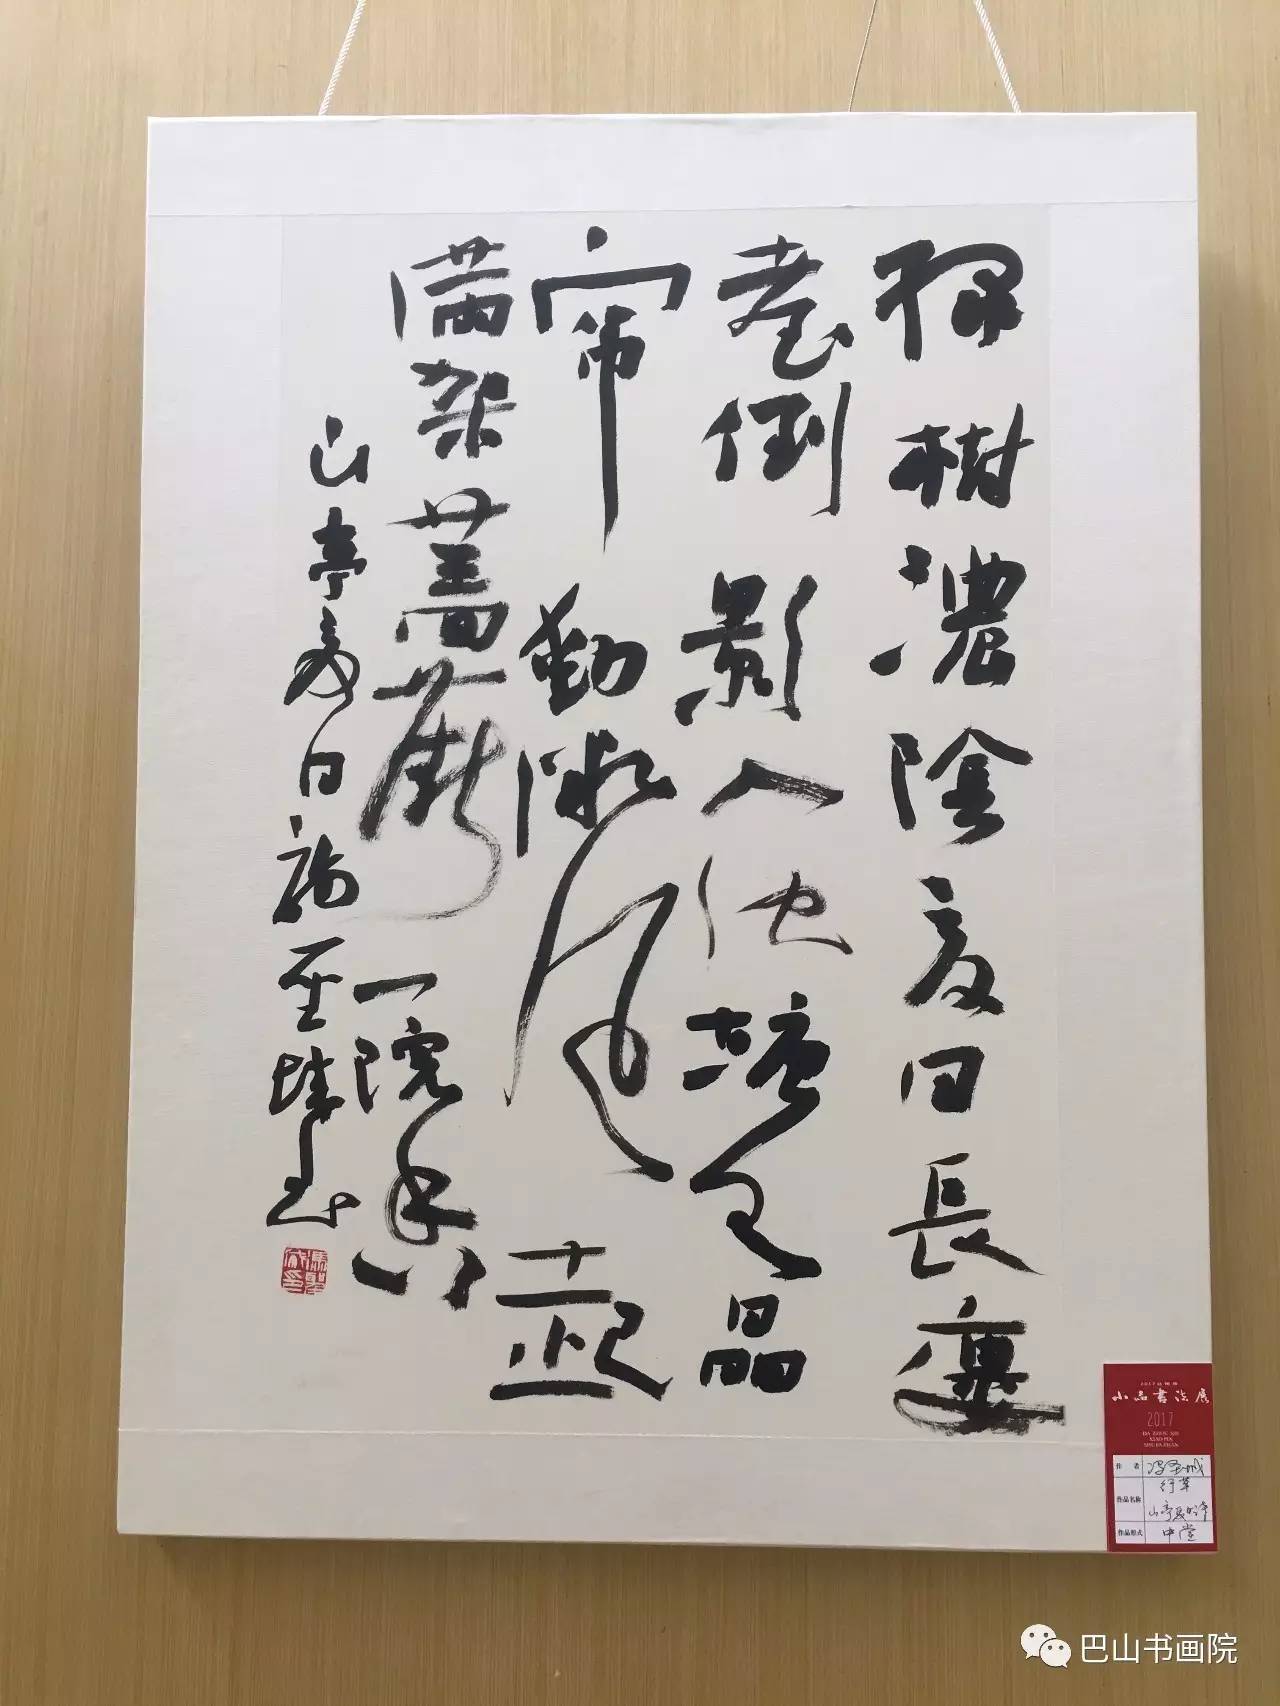 緑樹濃陰夏日長樓
臺倒影入池塘水晶
帘動微風起
满架蔷薇一院香
山亭夏日 馮圣城书
小品書法展
2017
DA ZHOU SHI
XIAO PIN
SHU FA ZHAN
作者 冯圣城
行草
作品名称 山亭夏日诗
作品形式 中堂
巴山书画院